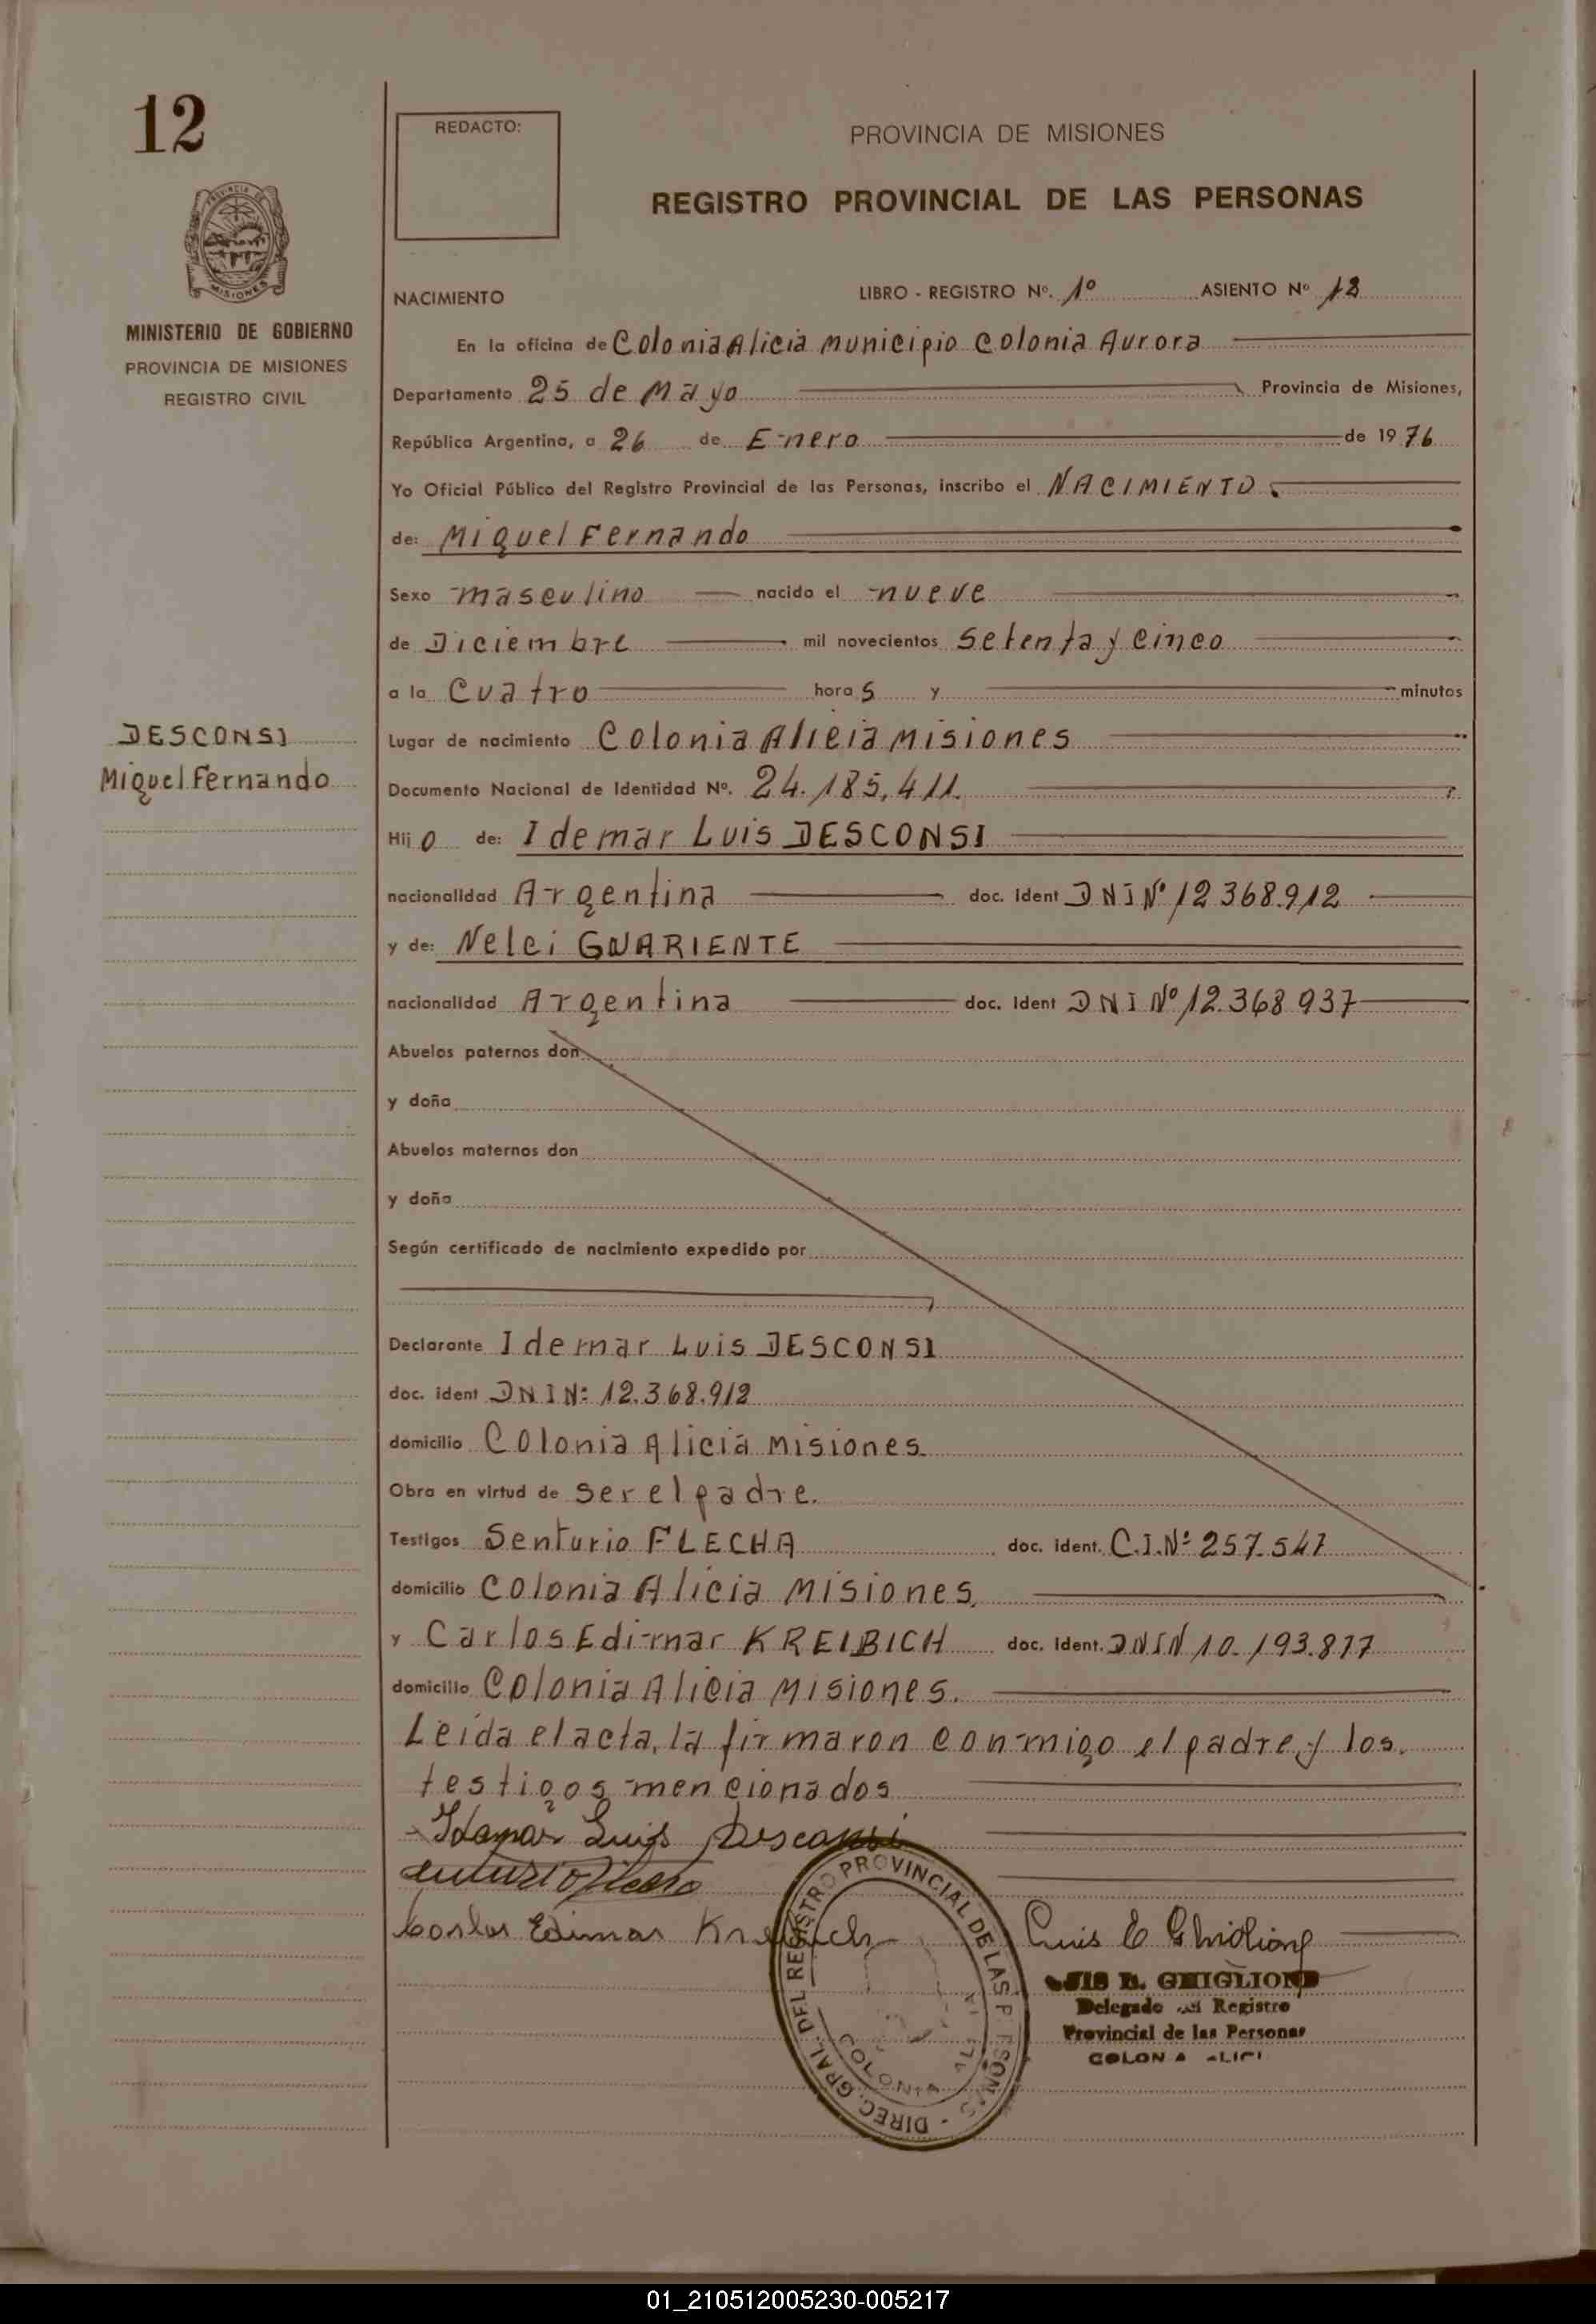 12
REDACTO:
PROVINCIA DE MISIONES
REGISTRO PROVINCIAL DE LAS PERSONAS
MISIONES
MINISTERIO DE GOBIERNO
PROVINCIA DE MISIONES
REGISTRO CIVIL
NACIMIENTO LIBRO - REGISTRO Nº. 1º ASIENTO Nº 12
En la oficina de Colonia Alicia Municipio Colonia Aurora
Departamento 25 de Mayo Provincia de Misiones,
República Argentina, a 26 de Enero de 1976
Yo Oficial Público del Registro Provincial de las Personas, inscribo el NACIMIENTO
de: Miguel Fernando
Sexo masculino nacido el nueve
de Diciembre mil novecientos setenta y cinco
a la cuatro horas y minutos
DESCONSI
Miguel Fernando
Lugar de nacimiento Colonia Alicia Misiones
Documento Nacional de Identidad Nº. 24.185.411.
Hijo de: Idemar Luis DESCONSI
nacionalidad Argentina doc. ident DNI Nº 12368.912
y de: Nelci GUARIENTE
nacionalidad Argentina doc. ident DNI Nº 12.368937
Abuelos paternos don
y doña
Abuelos maternos don
y doña
Según certificado de nacimiento expedido por
Declarante Idemar Luis DESCONSI
doc. ident DNI N: 12.368.912
domicilio Colonia Alicia Misiones.
Obra en virtud de ser el padre.
Testigos Senturio FLECHA doc. ident. C.I.Nº 257.547
domicilio Colonia Alicia Misiones,
y Carlos Edimar KREIBICH doc. ident. DNI N 10.193.877
domicilio Colonia Alicia Misiones.
Leida el acta, la firmaron conmigo el padre, y los
testigos mencionados
Idemar Luis Desconsi
Carlos Edimar Kreibich
Luis E Ghiglione
DIREC. GRAL. DEL REGISTRO PROVINCIAL DE LAS PERSONAS
COLONIA ALICIA
GHIGLIONE
Delegado del Registro
Provincial de las Personas
COLONIA ALICI
01_210512005230-005217